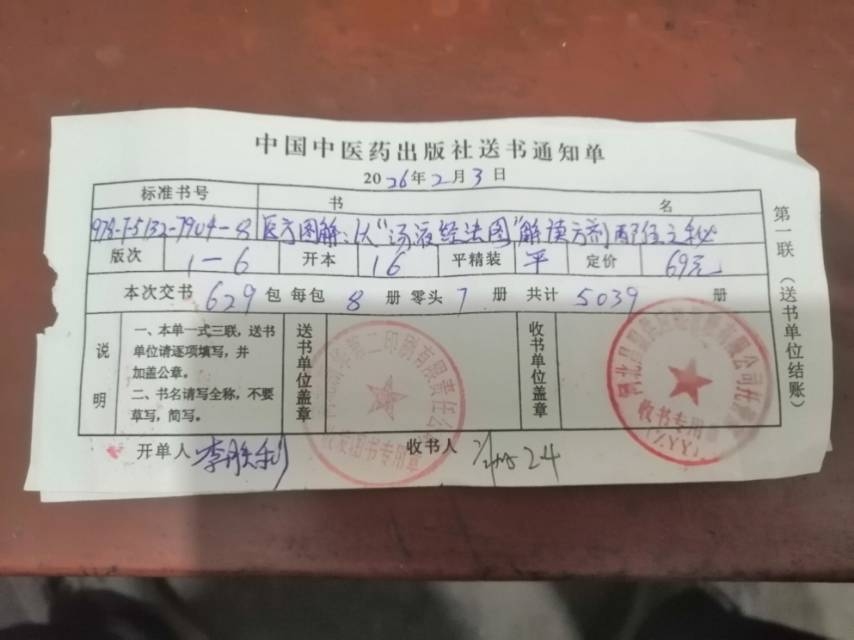 中国中医药出版社送书通知单
2026年2月3日
标准书号 书名
978-7-5132-7904-8 医方图解：以“汤液经法图”解读方剂配伍之秘
版次 1-6 开本 16 平精装 平 定价 69元
本次交书 629 包 每包 8 册 零头 7 册 共计 5039 册
说明
一、本单一式三联，送书
单位请逐项填写，并
加盖公章。
二、书名请写全称，不要
草写，简写。
送书单位盖章
第二印刷有限责任公
发书专用章
收书单位盖章
有限公司
收书专用章
(ZYY)
开单人 李胜利 收书人 24
第一联（送书单位结账）